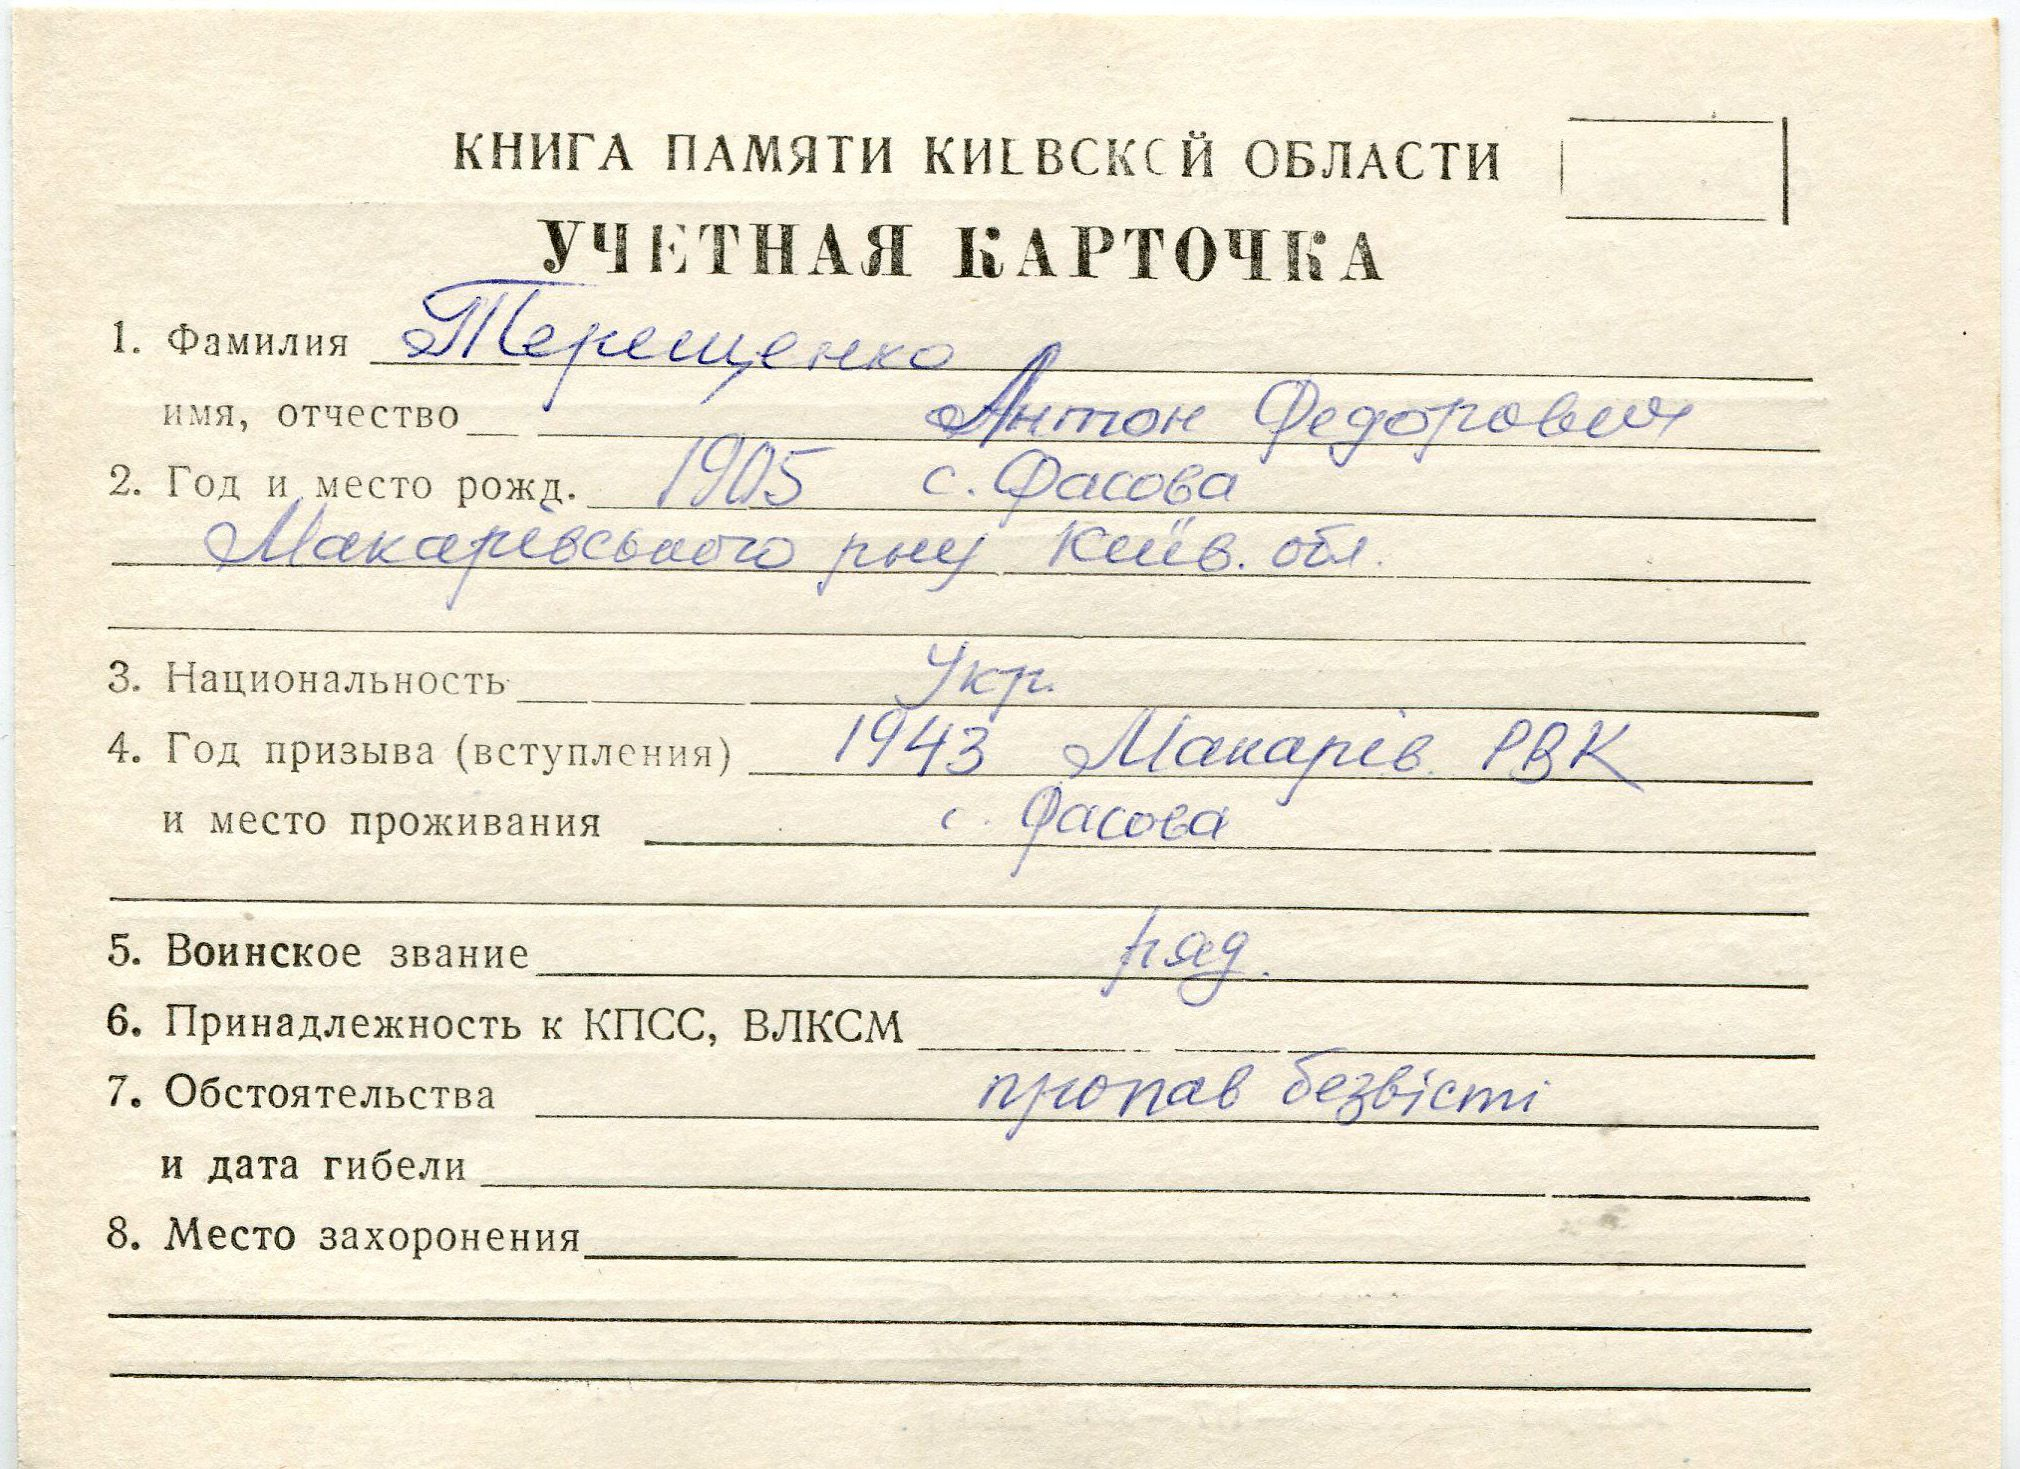 КНИГА ПАМЯТИ КИЕВСКОЙ ОБЛАСТИ
УЧЕТНАЯ КАРТОЧКА
1. Фамилия Терещенко
имя, отчество Антон Федорович
2. Год и место рожд. 1905 с. Фасова
Макарівського р-ну Київ. обл.
3. Национальность Укр.
4. Год призыва (вступления) 1943 Макарів. РВК
и место проживания с. Фасова
5. Воинское звание ряд.
6. Принадлежность к КПСС, ВЛКСМ
7. Обстоятельства пропав безвісті
и дата гибели
8. Место захоронения